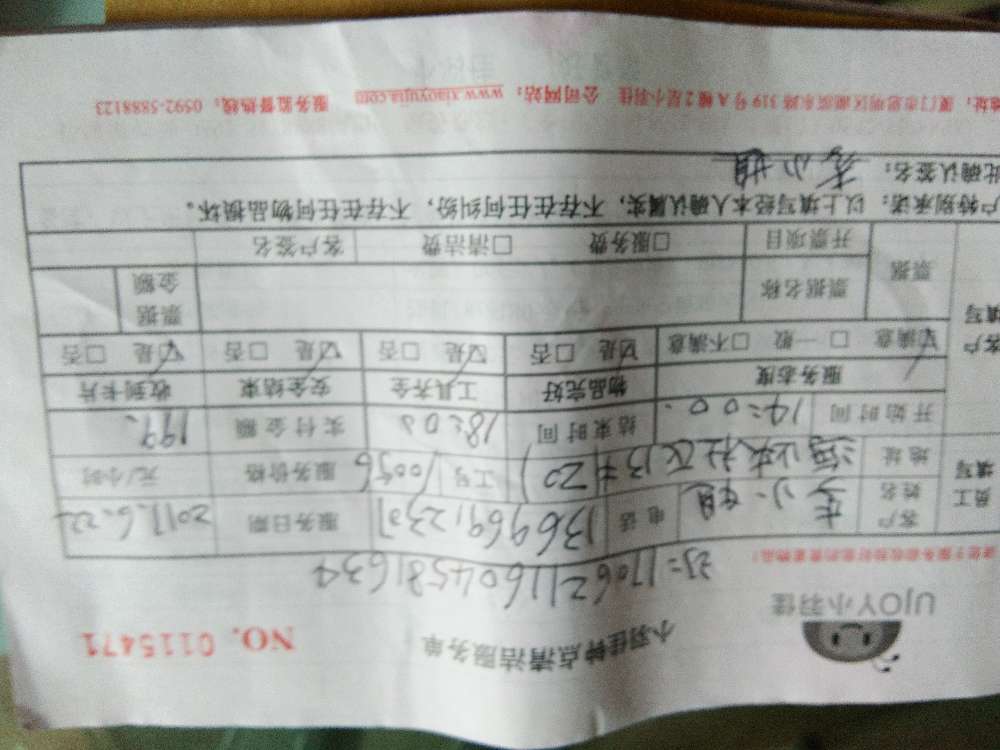 UJOY小羽佳
小羽佳钟点清洁服务单
NO. 0115471
请您于服务前收捡好您的贵重物品!
170621160458163
员工填写
客户姓名 李小姐 电话 13696912307 服务日期 2017.6.22
地址 社区13#201 工号 10056 服务价格 元/小时
开始时间 14:00. 结束时间 18:00 实付金额 199
客户填写
服务态度 物品完好 工具齐全 安全结束 收到卡片
☑满意 □一般 □不满意 ☑是 □否 ☑是 □否 ☑是 □否 ☑是 □否
票据 票据名称 票据金额
开票项目 □服务费 □清洁费 客户签名
户特别承诺:以上填写经本人确认属实,不存在任何纠纷,不存在任何物品损坏。
此确认签名: 李小姐
地址:厦门市思明区湖滨东路 319 号 A 幢 2 层小羽佳 公司网站:www.xiaoyujia.com 服务监督热线:0592-5888123